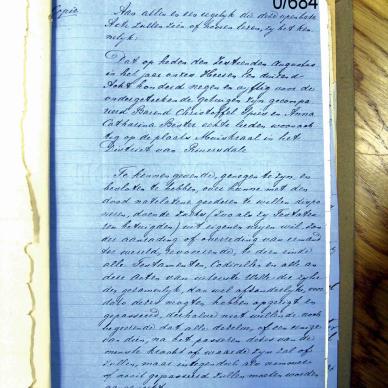 0/684
Copia
Aan allen en een iegelyk die deze openbare
Acte zullen zien of hooren lezen, zy het ken-
nelyk:
Dat op heden den Zestienden Augustus
in het jaar onzes Heeren Een duizend
Acht honderd negen en vyftig voor de
ondergeteekende Getuigen zyn gecompa-
reerd Barend Christoffel Spies en Anna
Catharina Bester echte lieden woonach-
tig op de plaats Muiskraal in het
District van Riversdale
Te kennen gevende, genegen te zyn, en
besloten te hebben, over hunne met den
dood natelatene goederen te willen dispo-
neren, doende zulks, (zoo als zy Testateu-
ren betuigden) uit eigenen vryen wil, zon-
der aanrading of overreding van iemand
ter wereld, revocerende, te dien einde
alle Testamenten, Codicillen en alle an-
dere Acten van uiterste Wille die zy het-
zy gezamenlyk, dan wel afzonderlyk, voor
date dezes mogten hebben opgerigt en
gepasseerd, derhalve wel willende
dat alle dezelve, of een eenige
van dien, na het passeren dezes van de
minste kracht of waarde zyn zal of
zullen, maar integendeel als
of nooit gepasseerd zullen moeten worden